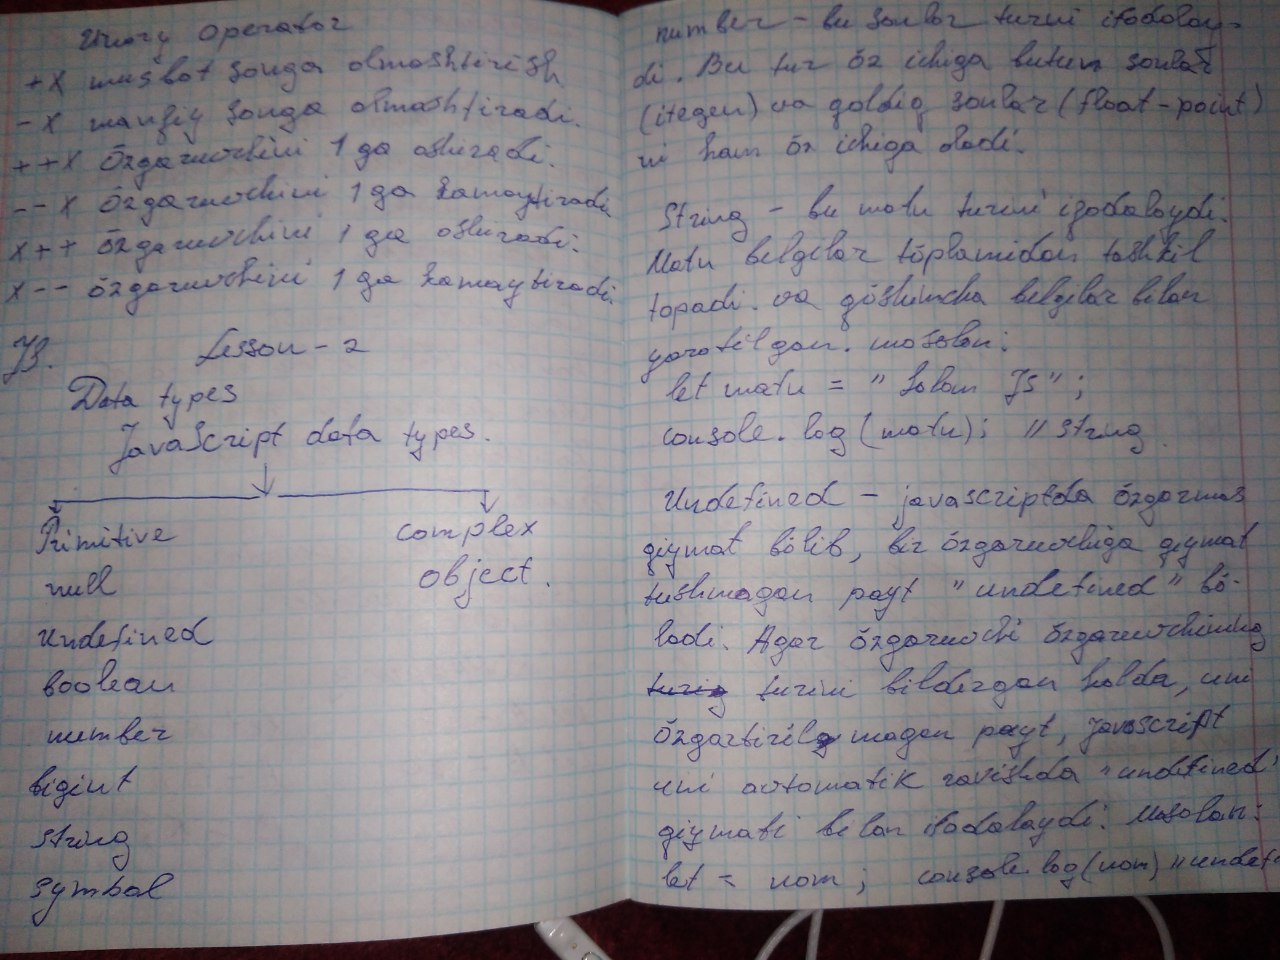 Unary operator
+x musbat songa almashtirish
-x manfiy songa almashtiradi.
++x õzgaruvchini 1 ga oshiradi.
--x õzgaruvchini 1 ga kamaytiradi
x++ õzgaruvchini 1 ga oshiradi.
x-- õzgaruvchini 1 ga kamaytiradi
JS. Lesson - 2
Data types
JavaScript data types.
Primitive complex
null object.
undefined
boolean
number
bigint
string
symbol
number - bu sonlar turini ifodalay-
di. Bu tur õz ichiga butun sonlar
(itegen) va qoldiq sonlar (float-point)
ni ham õz ichiga oladi.
String - bu matn turini izodalaydi.
Matn belgilar tõplamidan tashkil
topadi. va qõshimcha belgilar bilan
yaratilgan. masalan:
let matn = "Salom JS";
console.log(matn); //string
Undefined - javascriptda õzgarmas
qiymat bõlib, bir õzgaruvchiga qiymat
tushmagan payt "undefined" bõ-
ladi. Agar õzgaruvchi õzgaruvchining
turini bildirgan holda, uni
õzgartirilmagan payt, Javascript
uni avtomatik ravishda "undefined"
qiymati bilan ifodalaydi. Masalan:
let = nom; console.log(nom) "undef